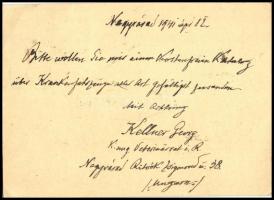 Nagyvárad 1941 ápr 12.
Bitte wollen Sie mir einen kostenfreien Katalog
über Kinderspielzeuge aller Art gefälligst zusenden
Mit Achtung
Kellner Georg
K. ung Veterinärrat i. R
Nagyvárad Zsigmond u. 38.
(Ungarn)